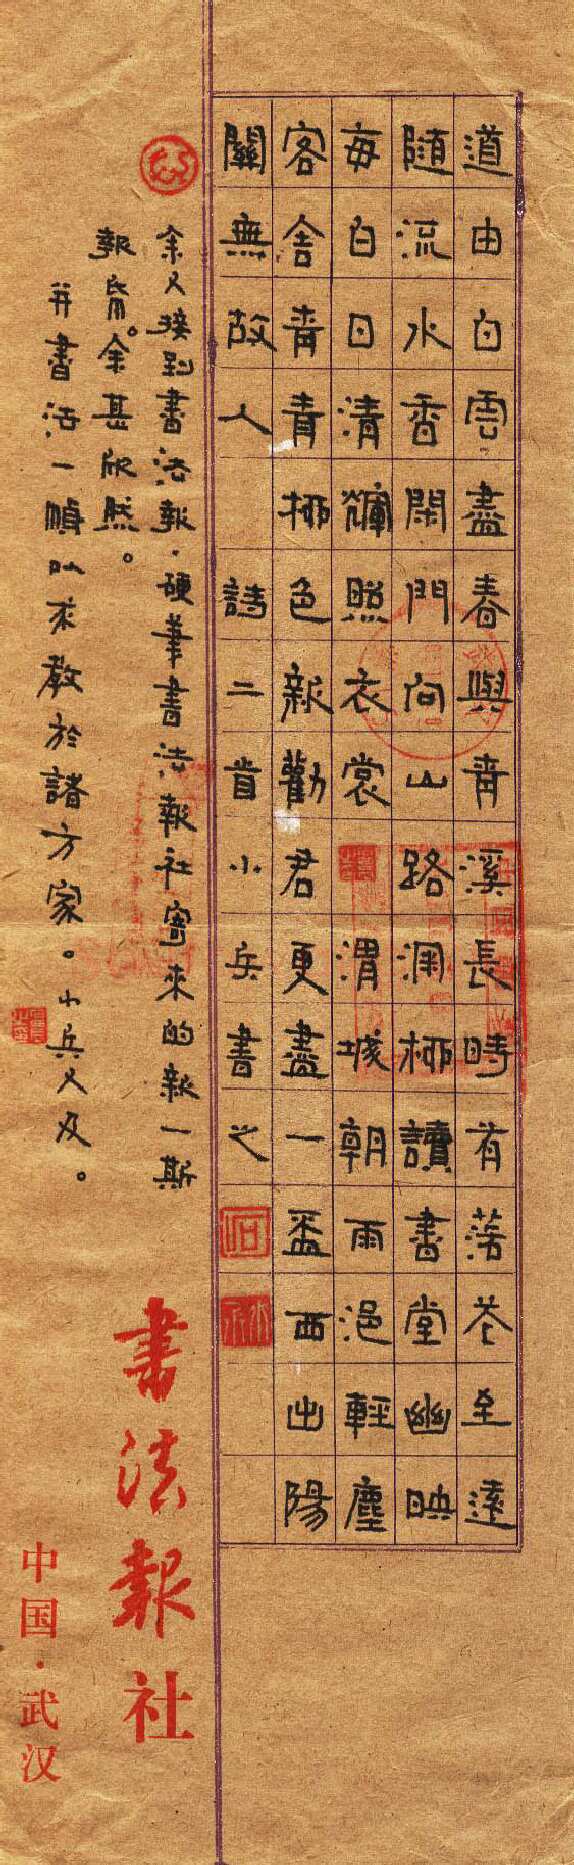 道由白雲盡春與青溪長時有落花至遠
隨流水香閑門向山路深柳讀書堂幽映
每白日清輝照衣裳 渭城朝雨浥輕塵
客舍青青柳色新勸君更盡一盃西出陽
關無故人 詩二首小兵書之
余又接到書法報·硬筆書法報社寄來的新一斯
報帋。余甚欣然。
并書法一幀以求教於諸方家。小兵又及。
書法報社
中国·武汉